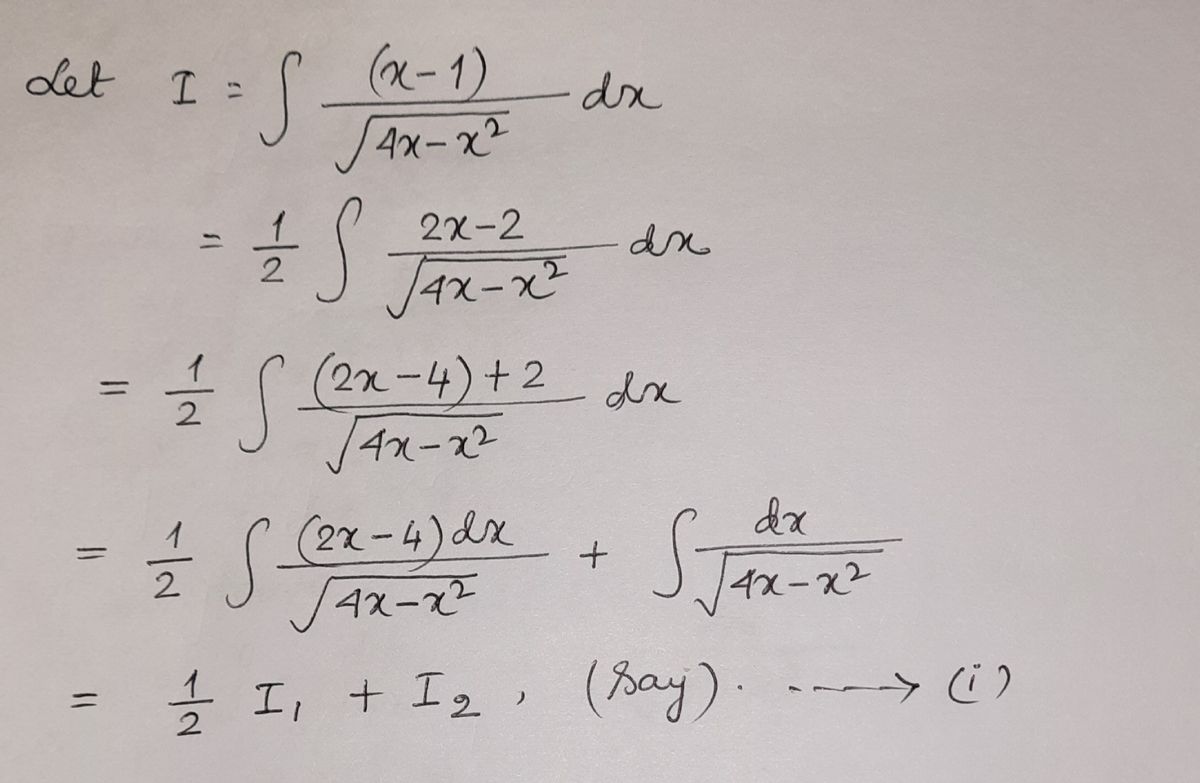 Let I = ∫ (x-1)/√(4x-x²) dx
= 1/2 ∫ 2x-2/√(4x-x²) dx
= 1/2 ∫ (2x-4)+2/√(4x-x²) dx
= 1/2 ∫ (2x-4)dx/√(4x-x²) + ∫ dx/√(4x-x²)
= 1/2 I₁ + I₂, (Say). ----→ (i)